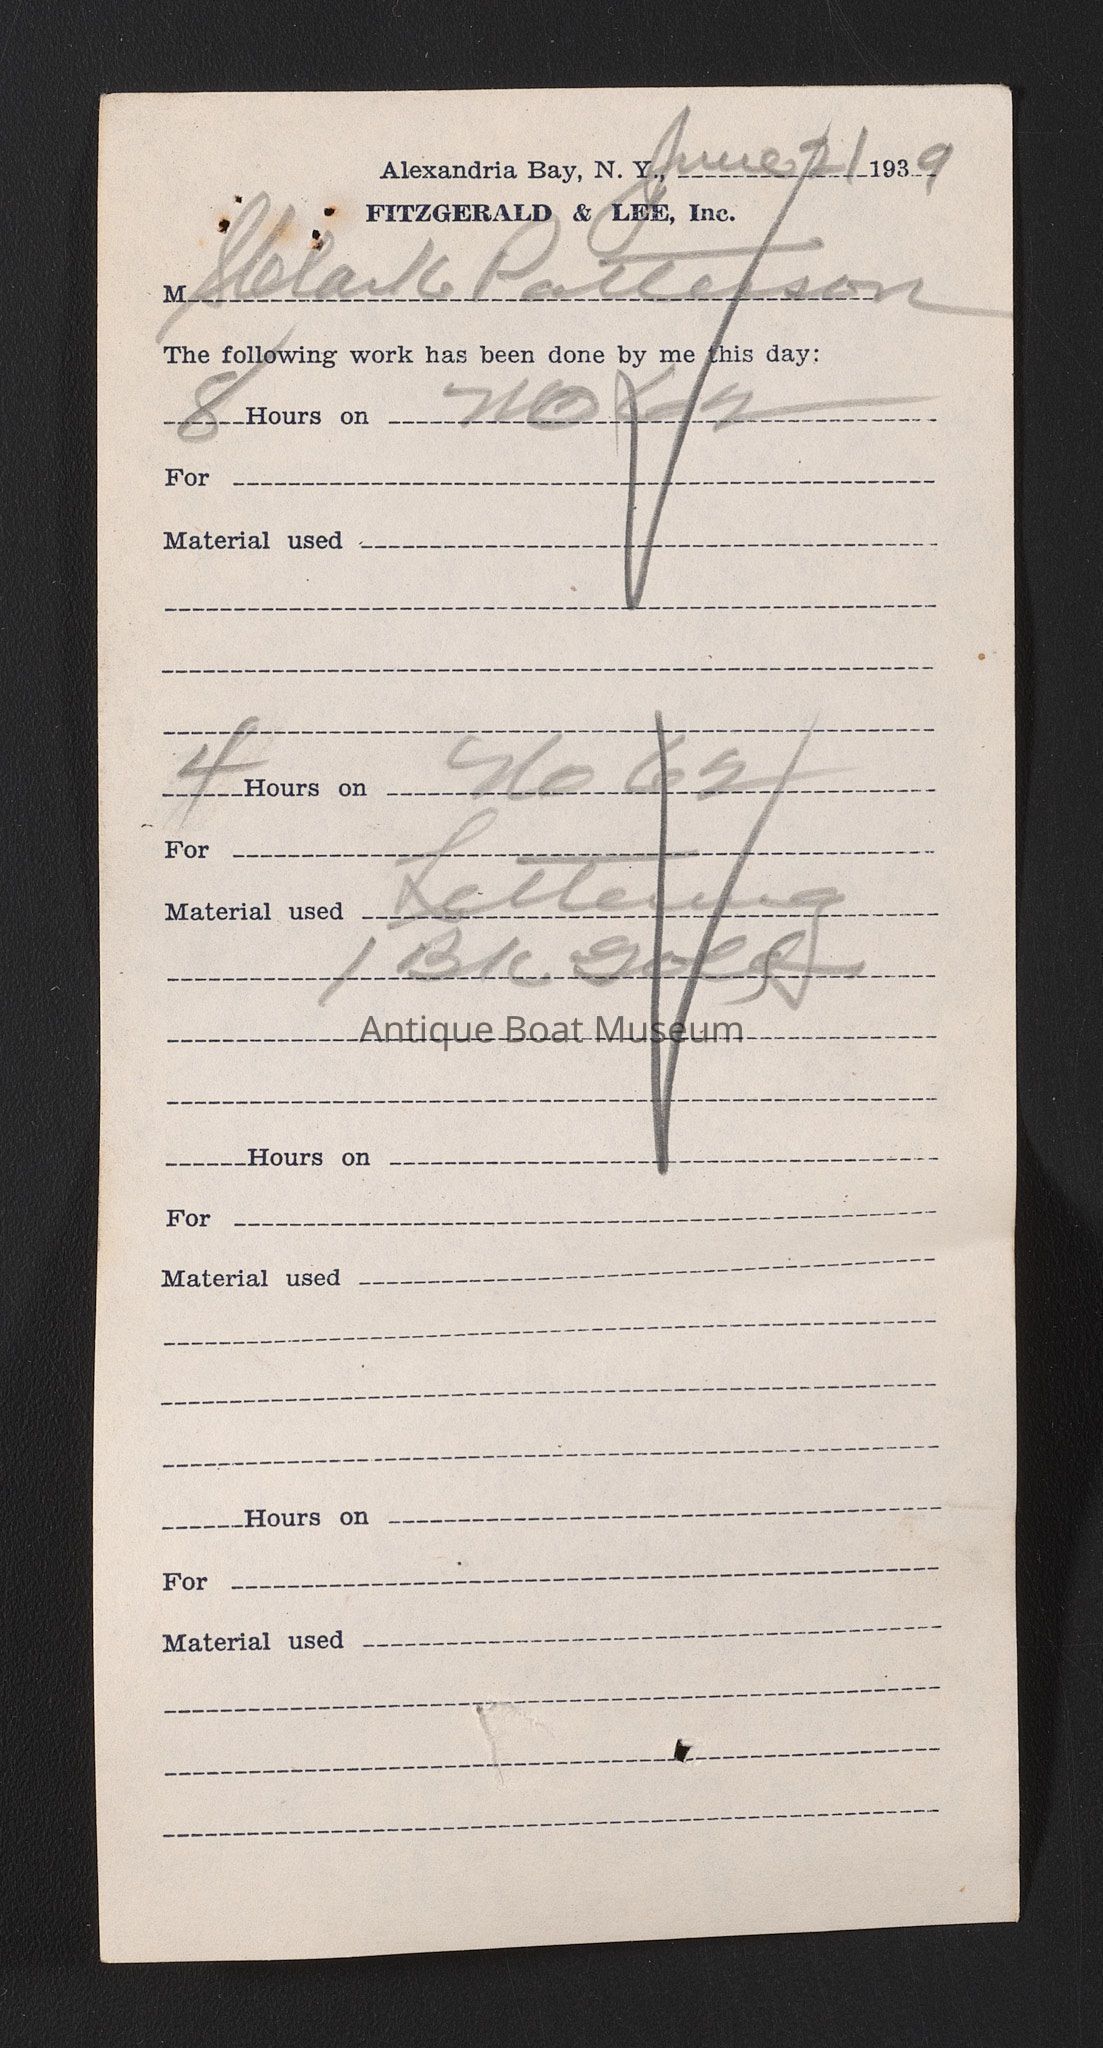 Alexandria Bay, N. Y., June 21 1939
FITZGERALD & LEE, Inc.
M Clark Patterson
The following work has been done by me this day:
8 Hours on No 62
For
Material used
4 Hours on No 62
For
Material used Lettering
1 Bk. Gold
Antique Boat Museum
Hours on
For
Material used
Hours on
For
Material used